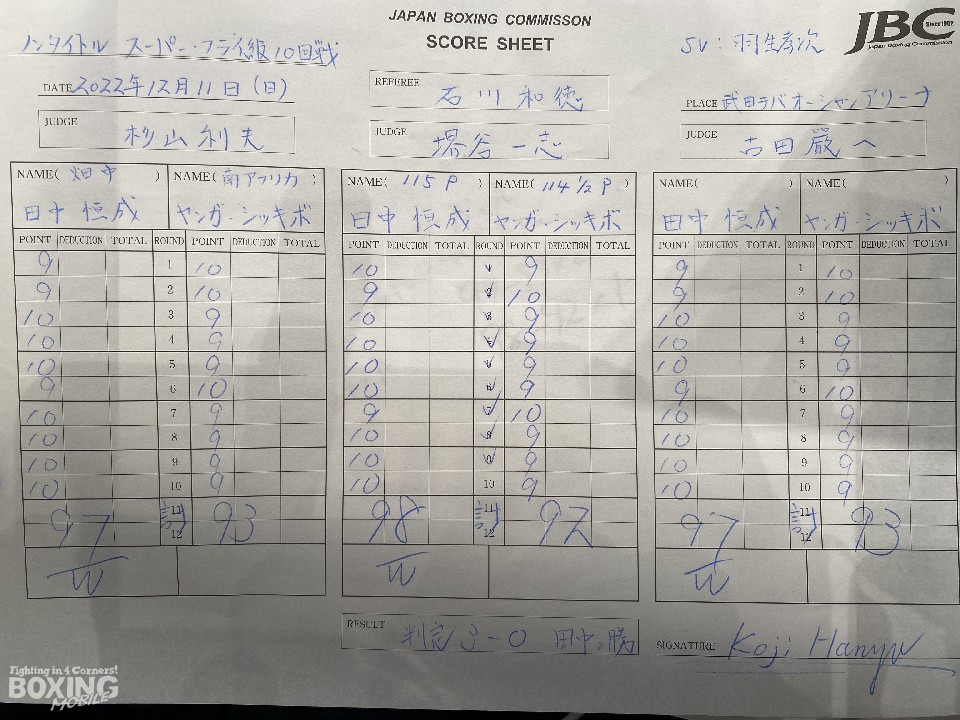 JAPAN BOXING COMMISSON
SCORE SHEET
JBC Since1952
Japan Boxing Commission
ノンタイトル スーパー・フライ級10回戦
SV：羽生孝次
DATE 2022年12月11日(日)
REFEREE 石川和徳
PLACE 武田テバオーシャンアリーナ
JUDGE 杉山利夫
JUDGE 堺谷一志
JUDGE 古田厳一
NAME( 畑中 ) NAME( 南アフリカ ) NAME( 115 P ) NAME( 114 1/2 P ) NAME( ) NAME( )
田中 恒成 ヤンガ・シッキボ 田中 恒成 ヤンガ・シッキボ 田中 恒成 ヤンガ・シッキボ
POINT DEDUCTION TOTAL ROUND POINT DEDUCTION TOTAL POINT DEDUCTION TOTAL ROUND POINT DEDUCTION TOTAL POINT DEDUCTION TOTAL ROUND POINT DEDUCTION TOTAL
9 1 10 10 1 9 9 1 10
9 2 10 9 2 10 9 2 10
10 3 9 10 3 9 10 3 9
10 4 9 10 4 9 10 4 9
10 5 9 10 5 9 10 5 9
9 6 10 10 6 9 9 6 10
10 7 9 9 7 10 10 7 9
10 8 9 10 8 9 10 8 9
10 9 9 10 9 9 10 9 9
10 10 9 10 10 9 10 10 9
97 計 11 93 98 計 11 92 97 計 11 93
12 12 12
W W W
RESULT 判定 3-0 田中の勝
SIGNATURE Koji Hanyu
Fighting in 4 Corners!
BOXING
MOBILE